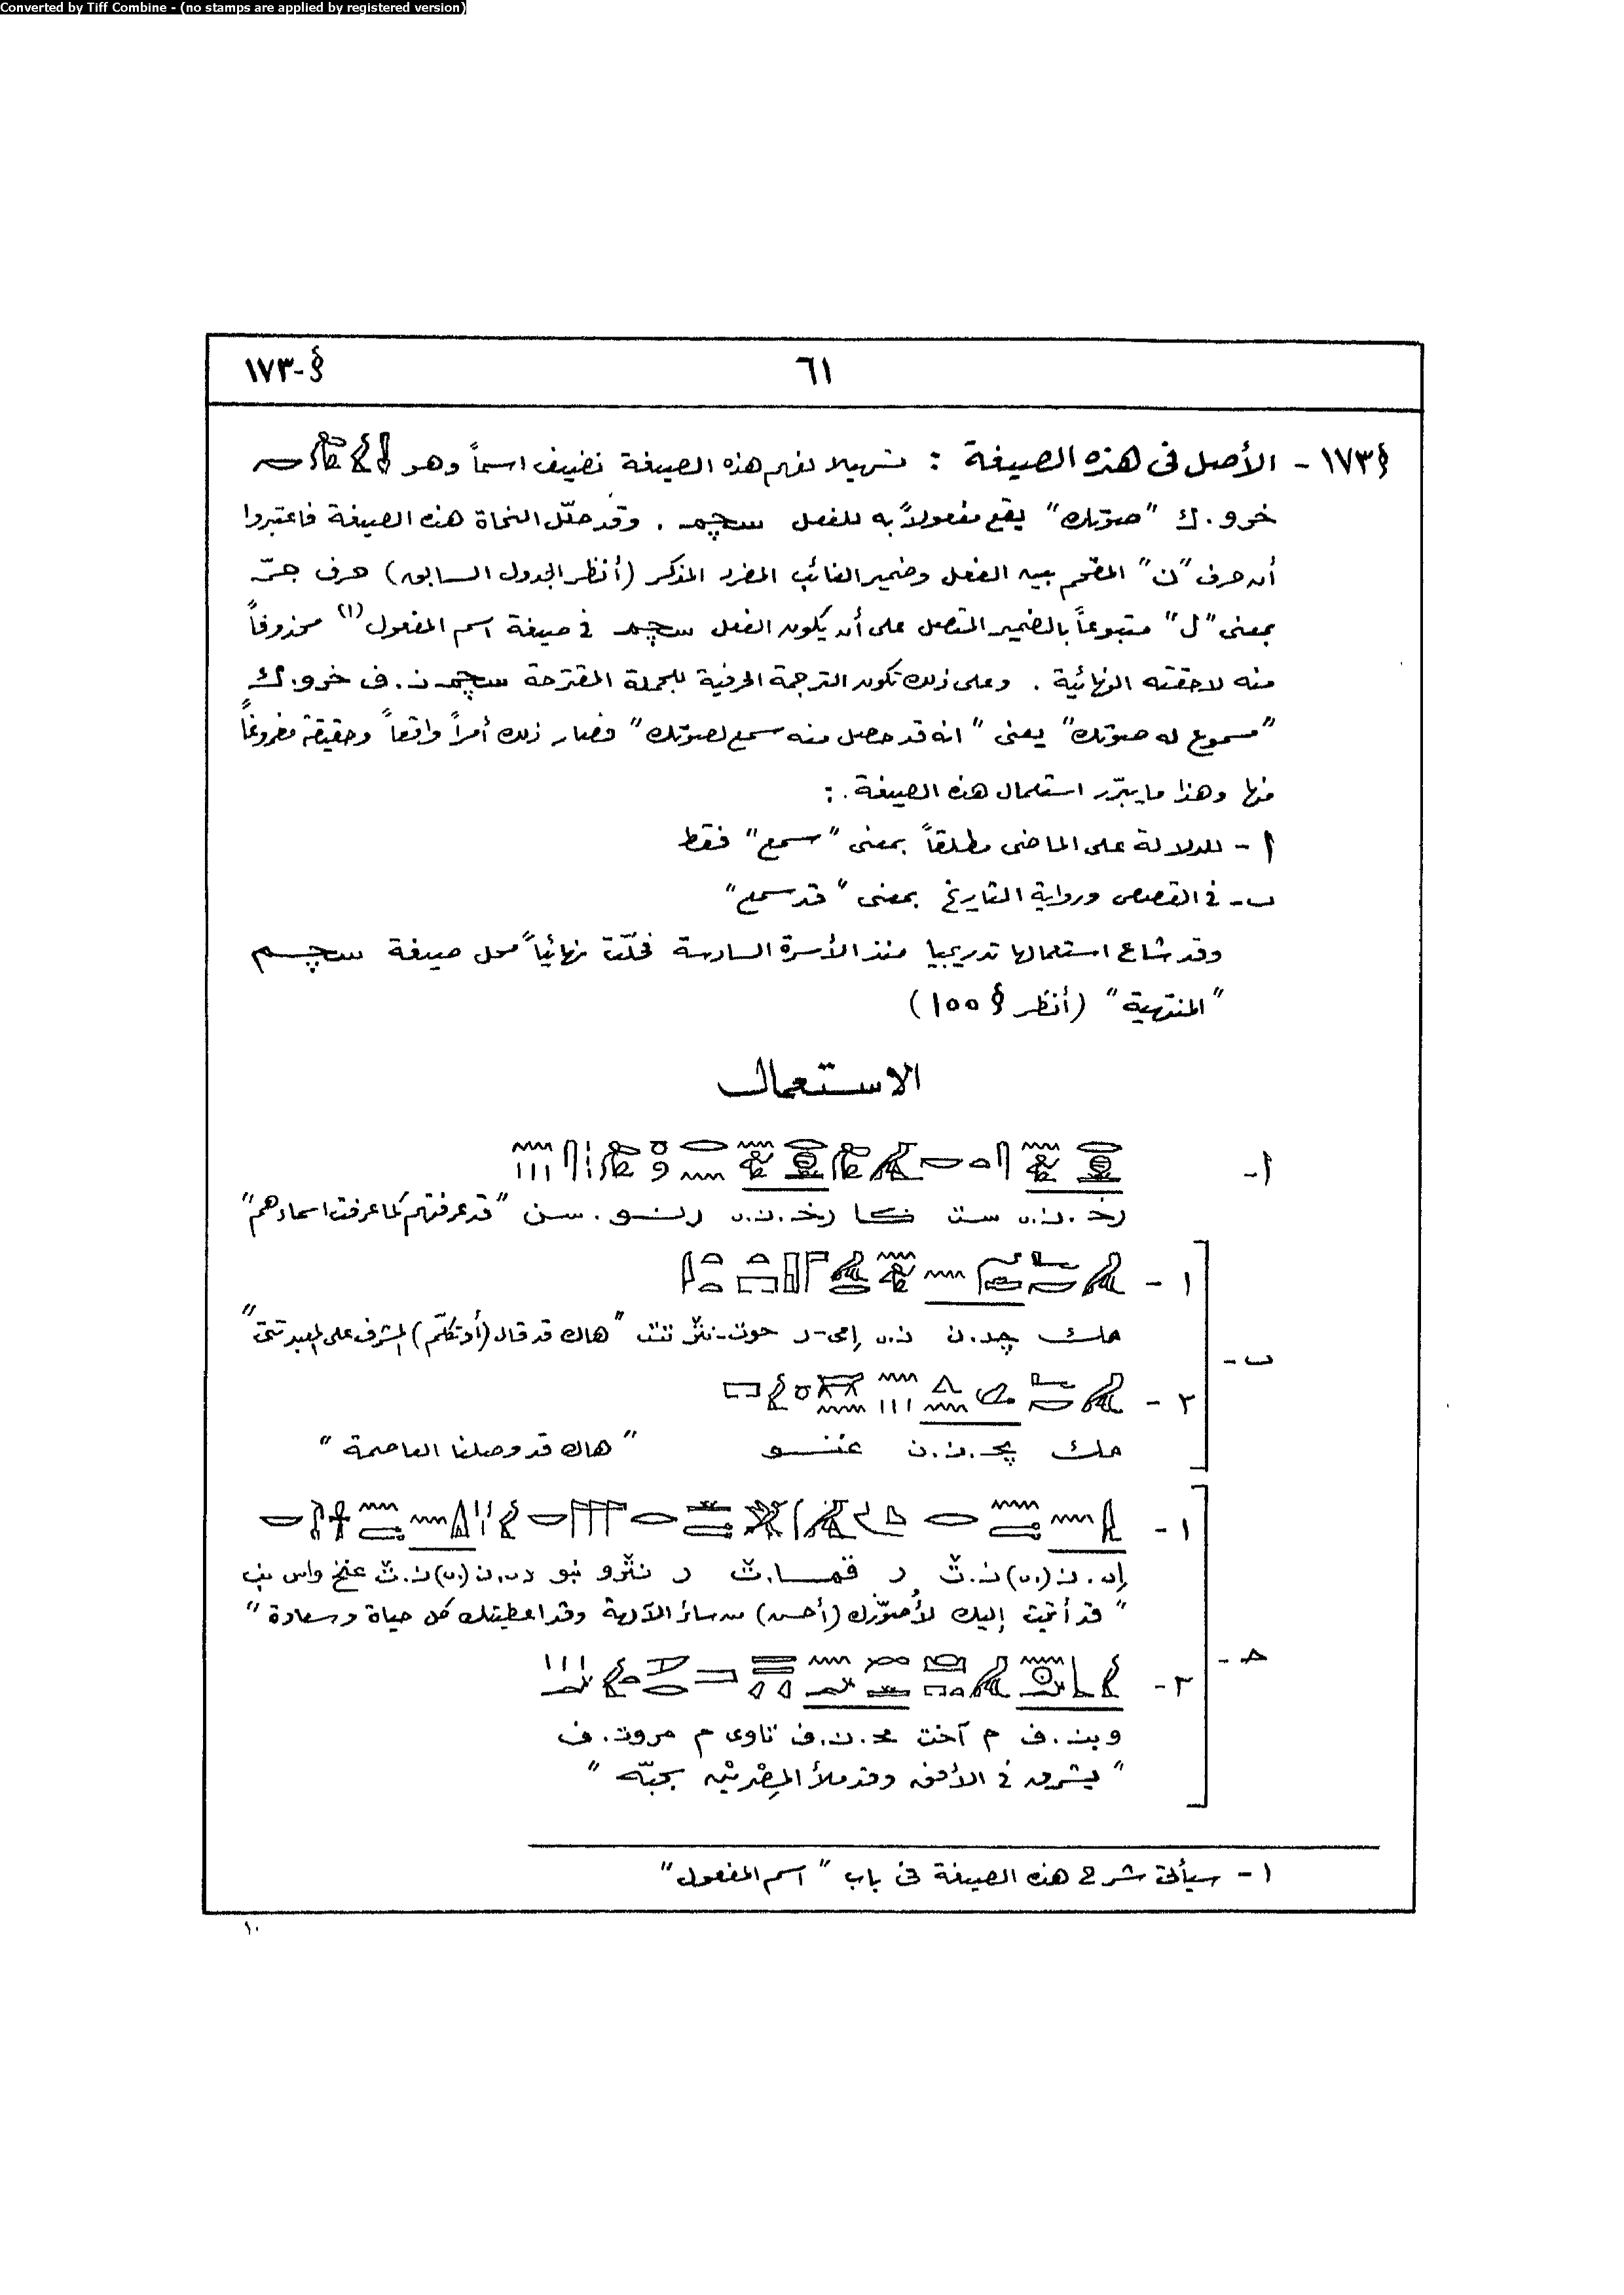 Converted by Tiff Combine - (no stamps are applied by registered version)
§-١٧٣
٦١
§١٧٣ - الأصل فى هذه الصيغة : تسهيلا لفهم هذه الصيغة نضيف اسماً وهو
خرو . ك "صوتك" يقع مفعولاً به للفعل سچم . وقد حلّل النحاة هذه الصيغة فاعتبروا
أن حرف "ن" المقحم بين الفعل وضمير الغائب المفرد المذكر (أنظر الجدول السابق) حرف جرّ
بمعنى "ل" متبوعاً بالضمير المتصل على أن يكون الفعل سچم فى صيغة اسم المفعول (١) محذوفاً
منه لاحقته النهائية . وعلى ذلك تكون الترجمة الحرفية للجملة المقترحة سچم.ن.ف خرو.ك
"مسموع له صوتك" يعنى "انه قد حصل منه سمع لصوتك" فصار ذلك أمراً واقعاً وحقيقة مفروغاً
منها وهذا ما يبرّر استعمال هذه الصيغة :
أ - للدلالة على الماضى مطلقاً بمعنى "سمع" فقط
ب - فى القصص ورواية التاريخ بمعنى "قد سمع"
وقد شاع استعمالها تدريجيا منذ الأسرة السادسة فحلّت نهائياً محل صيغة سچم
"المنتهية" (أنظر § ١٥٥)
الاستعمال
أ -
رخ.ن.ى ست كا رخ.ن.ى رنو.سن "قد عرفتهم كما عرفت اسماءهم"
ب -
١ -
مك چد.ن ن.ى إمى-ر حوت-نثر تنت "هاك قد قال (أو تكلّم) المشرف على المعبد تنتى"
٢ -
مك پح.ن.ن خنو "هاك قد وصلنا العاصمة"
حـ -
١ -
إى.ن(.ى) ن.ث ر قما.ث ر نثرو نبو دى.ن(.ى) ن.ث عنخ واس نب
"قد أتيت إليك لأصوّرك (أحسن) من سائر الآلهة وقد اعطيتك كل حياة وسعادة"
٢ -
وبن.ف م آخت مح.ن.ف تاوى م مروت.ف
"يشرق فى الأفق وقد ملأ المِصْريْن بحبّه"
١ - سيأتى شرح هذه الصيغة فى باب "اسم المفعول"
١٠